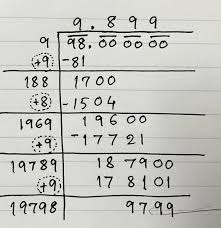 9.899
9 98.000000
+9 -81
188 1700
+8 -1504
1969 19600
+9 -17721
19789 187900
+9 178101
19798 9799